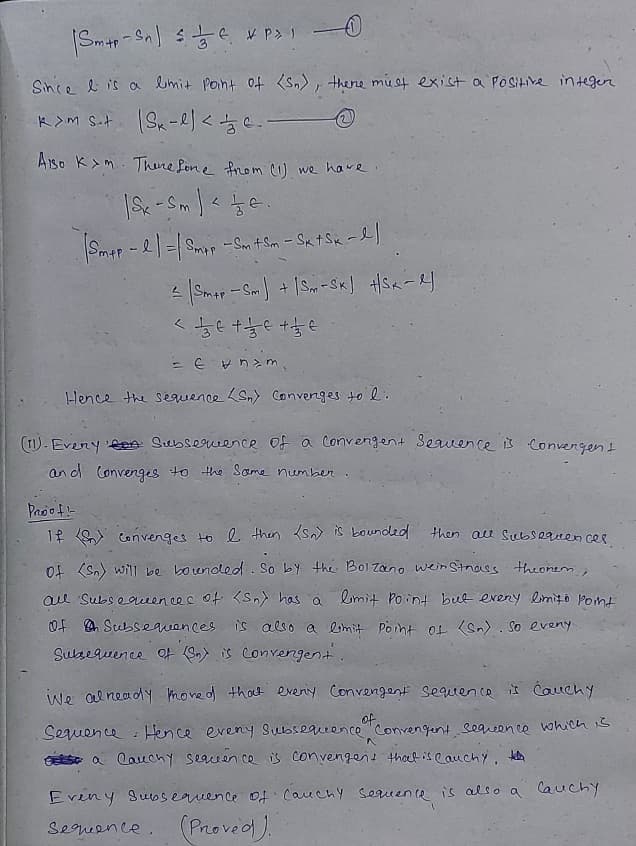 |Sm+p - Sn| ≤ 1/3 ε ∀ p≥1 —— ①
Since l is a limit point of <Sn>, there must exist a positive integer
K>m s.t |Sk-l| < 1/3 ε. —— ②
Also K>m. Therefore from (1) we have.
|Sk - Sm| < 1/3 ε.
|Sm+p - l| = |Sm+p - Sm + Sm - Sk + Sk - l|
≤ |Sm+p - Sm| + |Sm - Sk| + |Sk - l|
< 1/3 ε + 1/3 ε + 1/3 ε
= ε ∀ n≥m.
Hence the sequence <Sn> converges to l.
(11). Every Subsequence of a convergent Sequence is convergent
and converges to the Same number.
Proof:-
If <Sn> converges to l then <Sn> is bounded then all subsequences
of <Sn> will be bounded. So by the Bolzano weinstrass theorem,
all subsequences of <Sn> has a limit point but every limit point
of Subsequences is also a limit point of <Sn>. So every
Subsequence of <Sn> is convergent.
We already proved that every convergent sequence is cauchy
Sequence. Hence every subsequence of convergent sequence which is
a Cauchy sequence is convergent that is cauchy.
Every Subsequence of Cauchy sequence is also a Cauchy
sequence. (Proved).